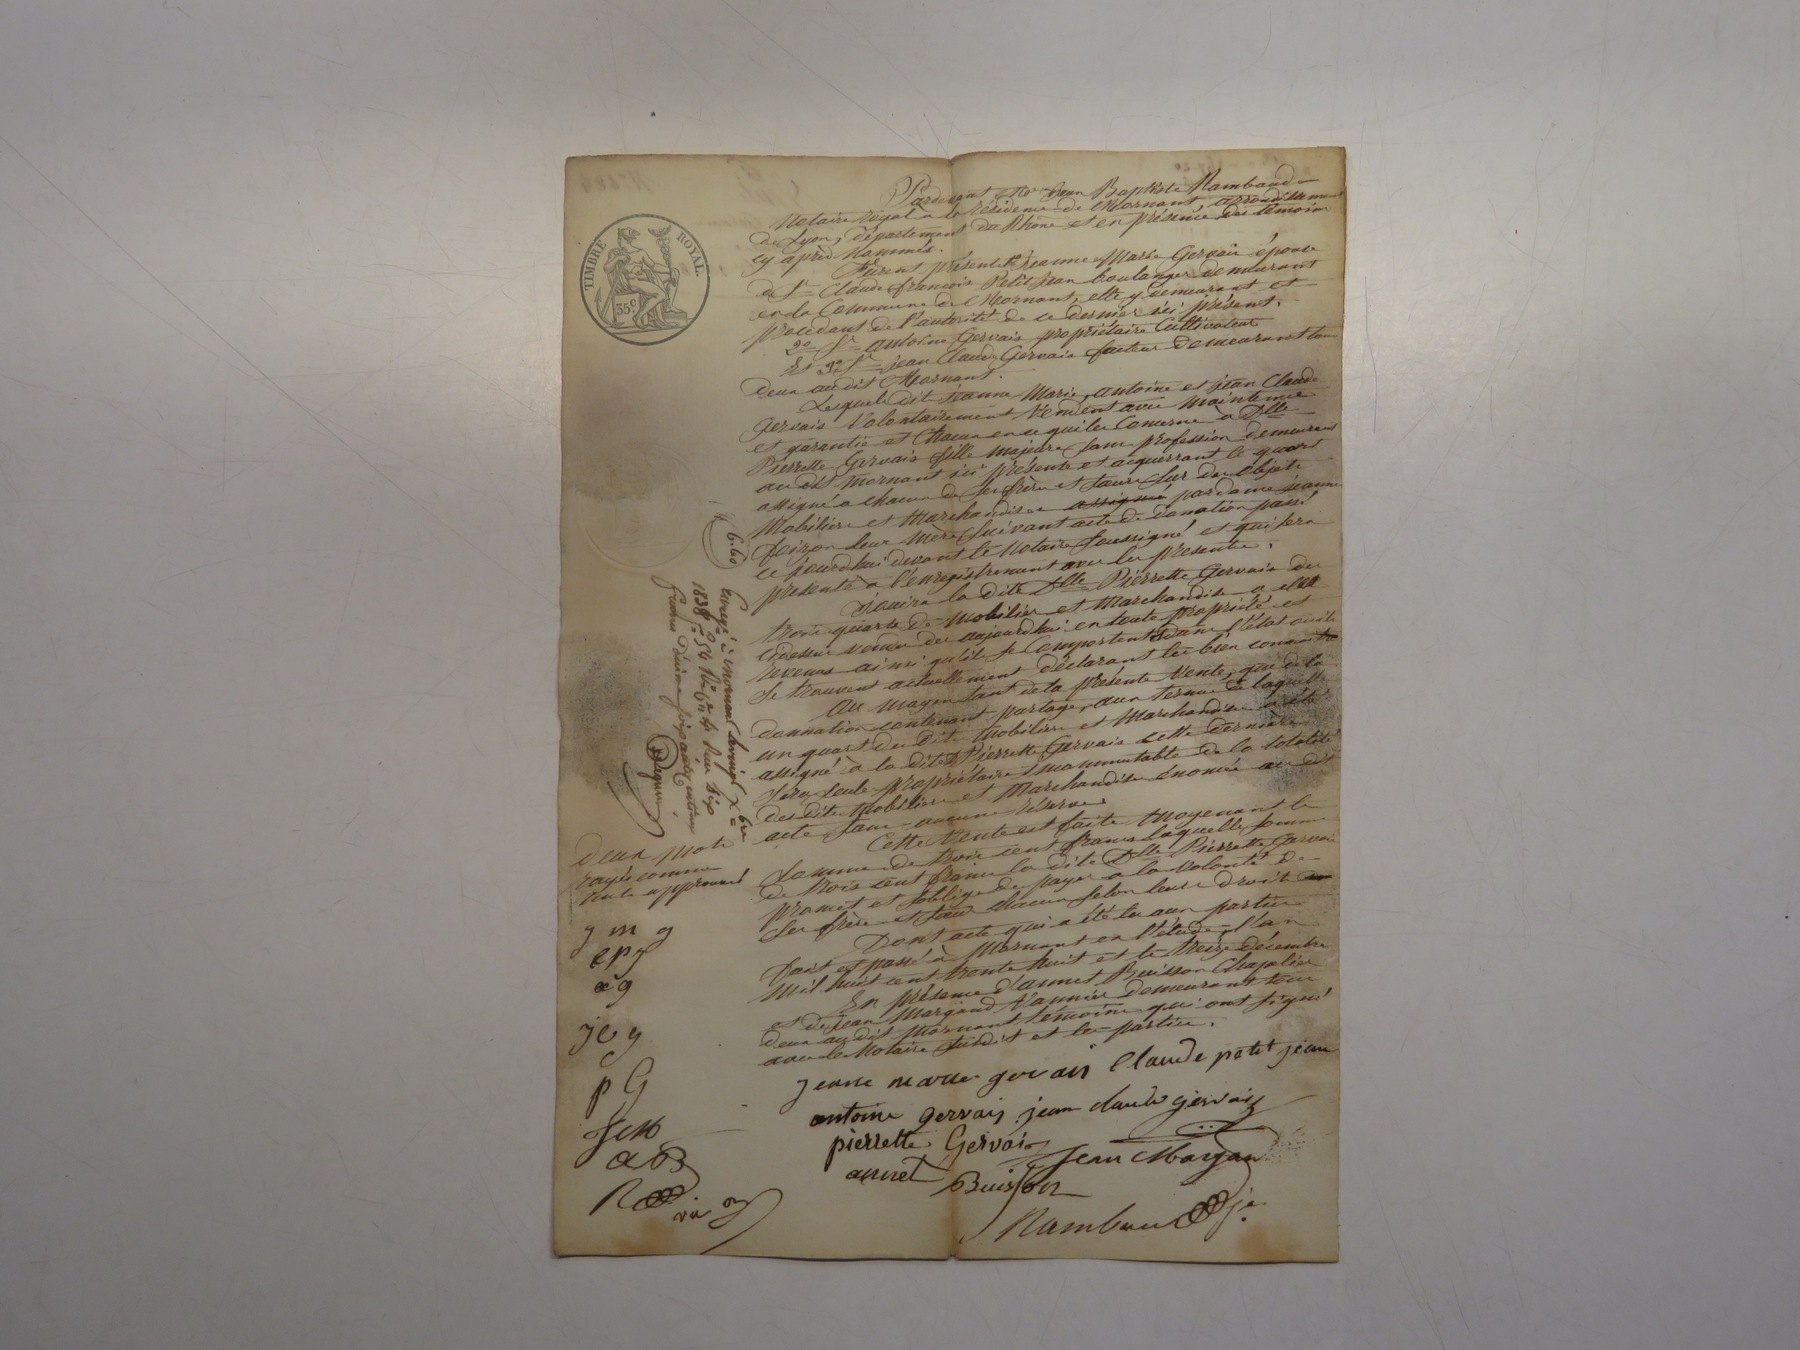 TIMBRE ROYAL.
35c
Pardevant Me Jean Baptiste Rambaud
Notaire royal à la résidence de Mornant arrondissement
de Lyon, département du Rhône et en présence des témoins
cy après nommés.
Furent présents Jeanne Marie Gervais épouse
de Sr Claude françois Petit Jean boulanger demeurant
en la Commune de Mornant, elle y demeurant et
procédant de l'autorité de ce dernier ici présent.
2o Sr antoine Gervais propriétaire Cultivateur
Et 3o Sr jean Claude Gervais facteur demeurant tous
deux au dit Mornant.
Lesquels dit jeanne Marie, antoine et jean Claude
Gervais Volontairement Vendent avec maintenue
et garantie et Chacun en ce qui les Concerne à Dlle
Pierrette Gervais fille majeure sans profession demeurant
au dit Mornant ici présente et acquerrant le quart
assigné a chacun de ses frères et soeur sur des objets
Mobiliers et Marchandises assignés par dame jeanne
foizon leur mère suivant acte de donation passé
ce jourdhui devant le Notaire soussigné et qui sera
présenté à l'enregistrement avec les présentes.
la dite Dlle Pierrette Gervais des
trois quarts de Mobilier et Marchandises a elle
cidessus vendu des aujourdhui en toute propriété et
revenus ainsi qu'ils se Comportent dans l'état ou ils
se trouvent actuellement déclarant les bien connaitre
Au moyen tant de la présente Vente, que de la
donnation contenant partage, aux termes de laquelle
un quart du dit Mobilier et Marchandises a été
assigné à la dite Pierrette Gervais cette dernière
sera seule propriétaire incommutable de la totalité
des dits Mobiliers et Marchandises énoncés au dit
acte sans aucune réserve.
Cette Vente est faite moyenant la
somme de trois cent francs laquelle somme
de trois cent francs la dite Dlle Pierrette Gervais
promet et s'oblige de payer a la volonté de
ses frères et soeur chacun selon leurs droits
Dont acte qui a été lu aux parties
fait et passé à Mornant en l'étude, l'an
mil huit cent trente huit et le treize décembre
En présence d'annet Buisson Chapelier
et de jean Margand Vannier demeurant tous
deux au dit Mornant témoins qui ont signé
avec le Notaire susdit et les parties.
jeanne marie gervais Claude petit jean
antoine gervais jean claude gervais
pierrette Gervais
Jean Margan
annet Buisson
Rambaud
6.60
Enregé à mornant
1838 fo 54
Deux mots
rayés comme
nuls approuvés
j m g
c p j
a g
j c g
p G
a B
R